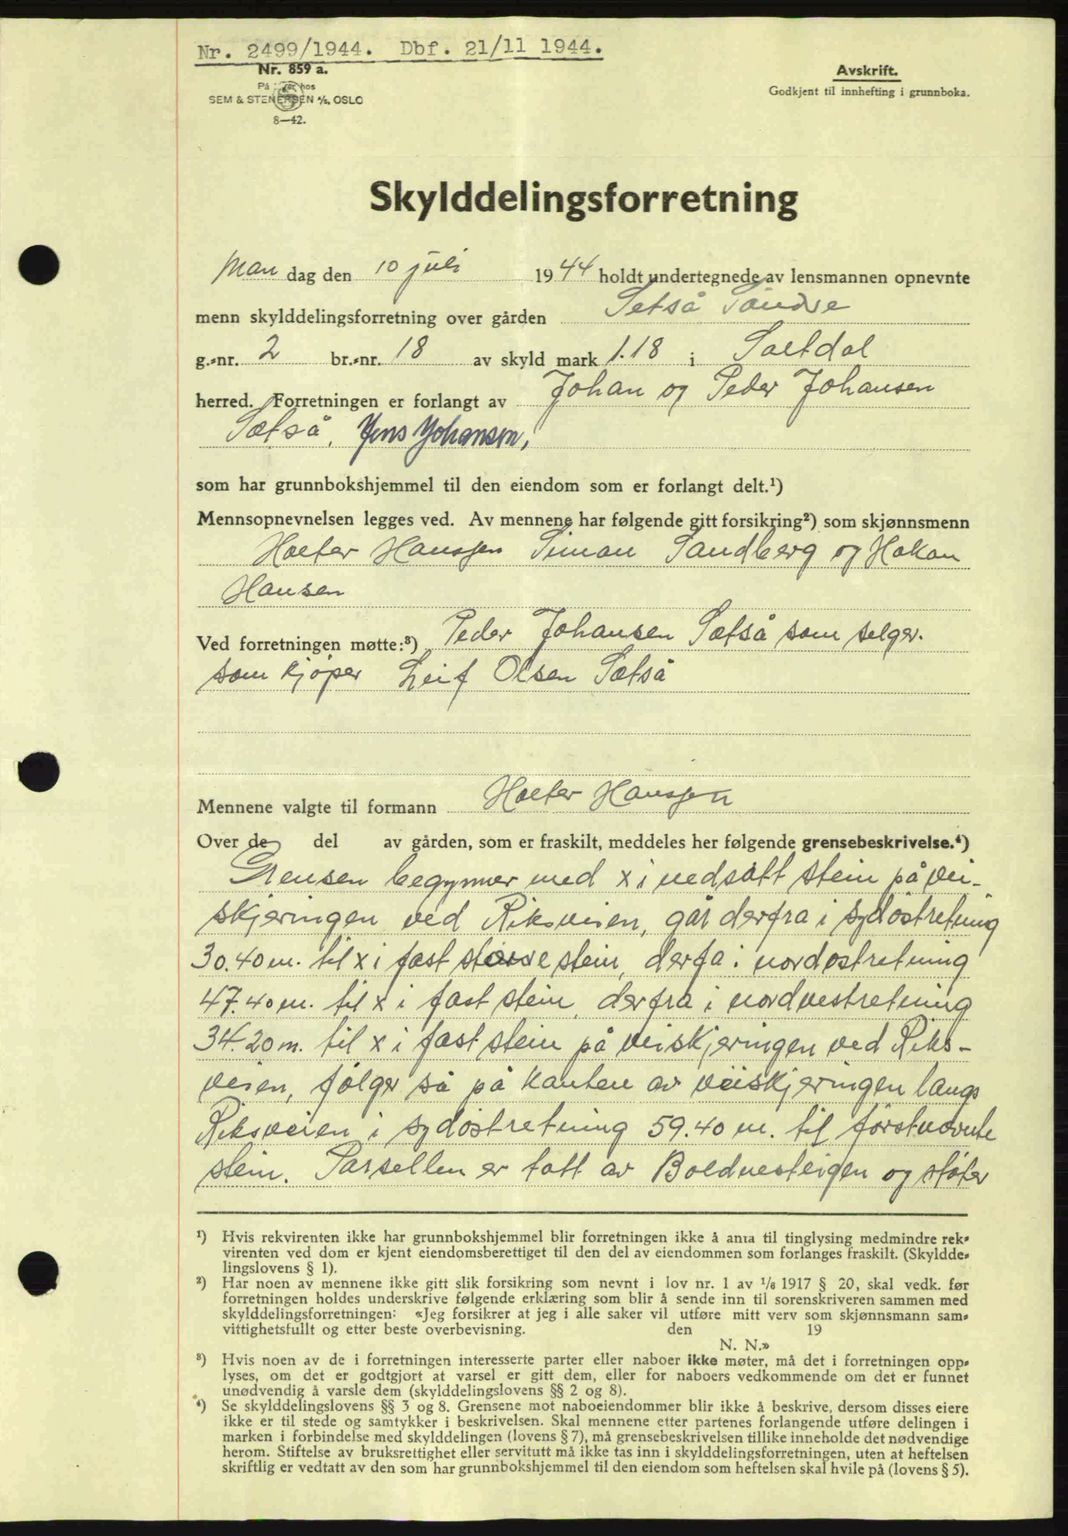 Nr. 2499/1944. Dbf. 21/11 1944.
Nr. 859 a.
På hos
SEM & STENERSEN A/S, OSLO
8—42.
Avskrift.
Godkjent til innhefting i grunnboka.
Skylddelingsforretning
Man dag den 10 juli 1944 holdt undertegnede av lensmannen opnevnte
menn skylddelingsforretning over gården Setså Søndre
g.-nr. 2 br.-nr. 18 av skyld mark 1.18 i Saltdal
herred. Forretningen er forlangt av Johan og Peder Johansen
Sætså, Jens Johansen,
som har grunnbokshjemmel til den eiendom som er forlangt delt.¹)
Mennsopnevnelsen legges ved. Av mennene har følgende gitt forsikring²) som skjønnsmenn
Holter Hanssen Simon Sandberg og Hakon
Hansen
Ved forretningen møtte:³) Peder Johansen Sætså som selger.
som kjøper Leif Olsen Sætså
Mennene valgte til formann Holter Hanssen
Over de del av gården, som er fraskilt, meddeles her følgende grensebeskrivelse.⁴)
Grensen begynner med x i nedsatt stein på vei-
skjeringen ved Riksveien, går derfra i sydøstretning
30.40 m. til x i fast større stein, derfa i nordøstretning
47.40 m. til x i fast stein, derfra i nordvestretning
34.20 m. til x i fast stein på veiskjeringen ved Riks-
veien, følger så på kanten av veiskjeringen langs
Riksveien i sydøstretning 59.40 m. til førstnevnte
stein. Parsellen er tatt av Boldvesteigen og støter
¹) Hvis rekvirenten ikke har grunnbokshjemmel blir forretningen ikke å anta til tinglysing medmindre rek-
virenten ved dom er kjent eiendomsberettiget til den del av eiendommen som forlanges fraskilt. (Skyldde-
lingslovens § 1).
²) Har noen av mennene ikke gitt slik forsikring som nevnt i lov nr. 1 av 1/6 1917 § 20, skal vedk. før
forretningen holdes underskrive følgende erklæring som blir å sende inn til sorenskriveren sammen med
skylddelingsforretningen: «Jeg forsikrer at jeg i alle saker vil utføre mitt verv som skjønnsmann sam-
vittighetsfullt og etter beste overbevisning. den 19
N. N.»
³) Hvis noen av de i forretningen interesserte parter eller naboer ikke møter, må det i forretningen opp-
lyses, om det er godtgjort at varsel er gitt dem, eller for naboers vedkommende om det er funnet
unødvendig å varsle dem (skylddelingslovens §§ 2 og 8).
⁴) Se skylddelingslovens §§ 3 og 8. Grensene mot naboeiendommer blir ikke å beskrive, dersom disses eiere
ikke er til stede og samtykker i beskrivelsen. Skal mennene etter partenes forlangende utføre delingen i
marken i forbindelse med skylddelingen (lovens § 7), må grensebeskrivelsen tillike inneholde det nødvendige
herom. Stiftelse av bruksrettighet eller servitutt må ikke tas inn i skylddelingsforretningen, uten at heftelsen
skriftlig er vedtatt av den som har grunnbokshjemmel til den eiendom som heftelsen skal hvile på (lovens § 5).